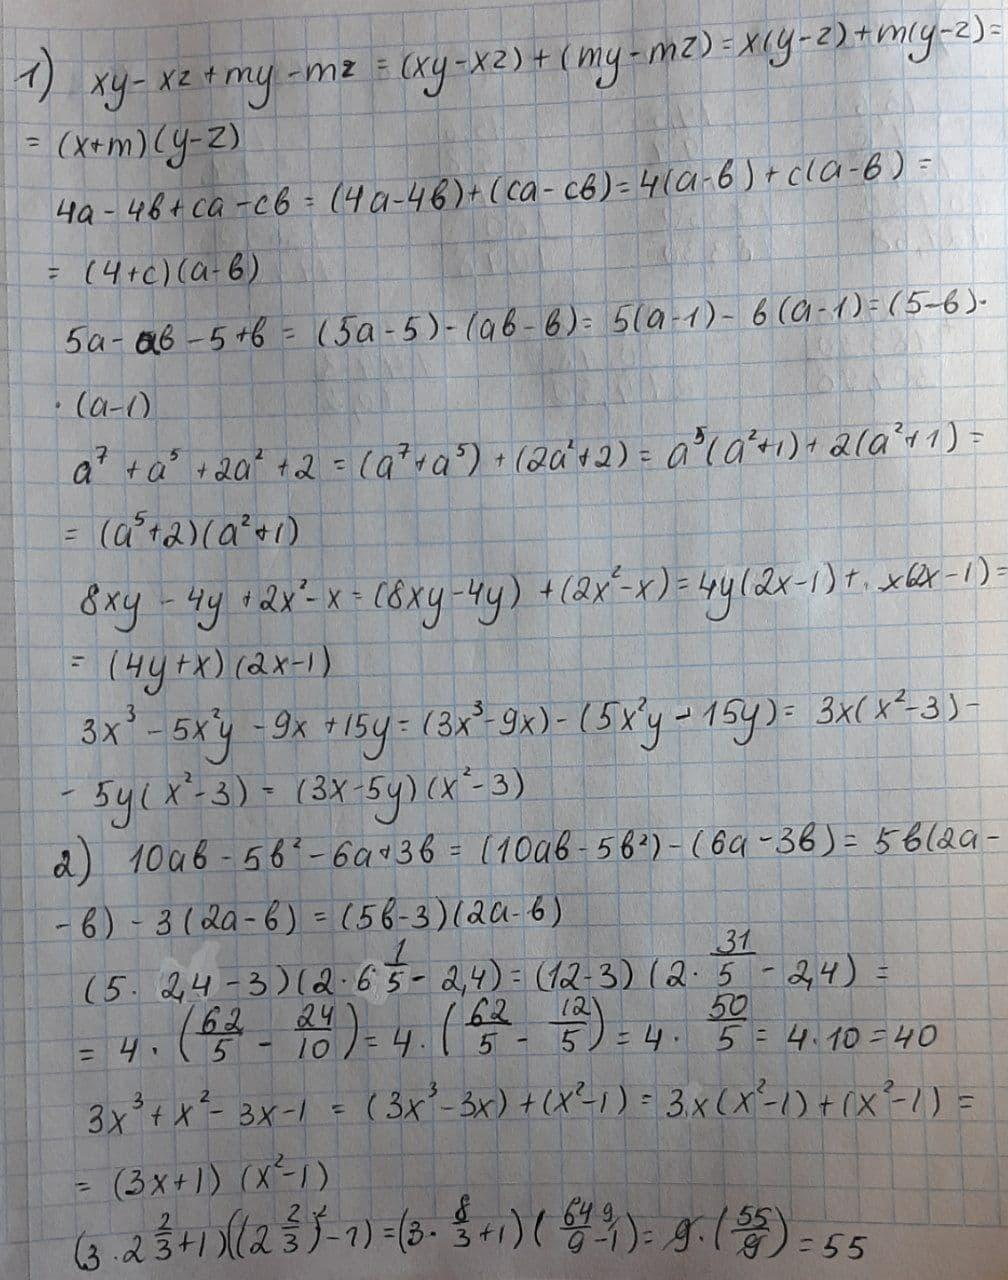 1) xy - xz + my - mz = (xy - xz) + (my - mz) = x(y-z) + m(y-z) =
= (x+m)(y-z)
4a - 4b + ca - cb = (4a-4b) + (ca - cb) = 4(a-b) + c(a-b) =
= (4+c)(a-b)
5a - ab - 5 + b = (5a-5) - (ab - b) = 5(a-1) - b(a-1) = (5-b)·
· (a-1)
a⁷ + a⁵ + 2a² + 2 = (a⁷+a⁵) + (2a²+2) = a⁵(a²+1) + 2(a²+1) =
= (a⁵+2)(a²+1)
8xy - 4y + 2x² - x = (8xy-4y) + (2x²-x) = 4y(2x-1) + x(2x-1) =
= (4y+x)(2x-1)
3x³ - 5x²y - 9x + 15y = (3x³-9x) - (5x²y - 15y) = 3x(x²-3) -
- 5y(x²-3) = (3x-5y)(x²-3)
2) 10ab - 5b² - 6a + 3b = (10ab - 5b²) - (6a - 3b) = 5b(2a -
- b) - 3(2a-b) = (5b-3)(2a-b)
(5 · 2,4 - 3)(2 · 6 1/5 - 2,4) = (12-3)(2 · 31/5 - 2,4) =
= 4 · (62/5 - 24/10) = 4 · (62/5 - 12/5) = 4 · 50/5 = 4 · 10 = 40
3x³ + x² - 3x - 1 = (3x³-3x) + (x²-1) = 3x(x²-1) + (x²-1) =
= (3x+1)(x²-1)
(3 · 2 2/3 + 1)((2 2/3)² - 1) = (3 · 8/3 + 1)(64/9 - 9/1) = 9 · (55/9) = 55